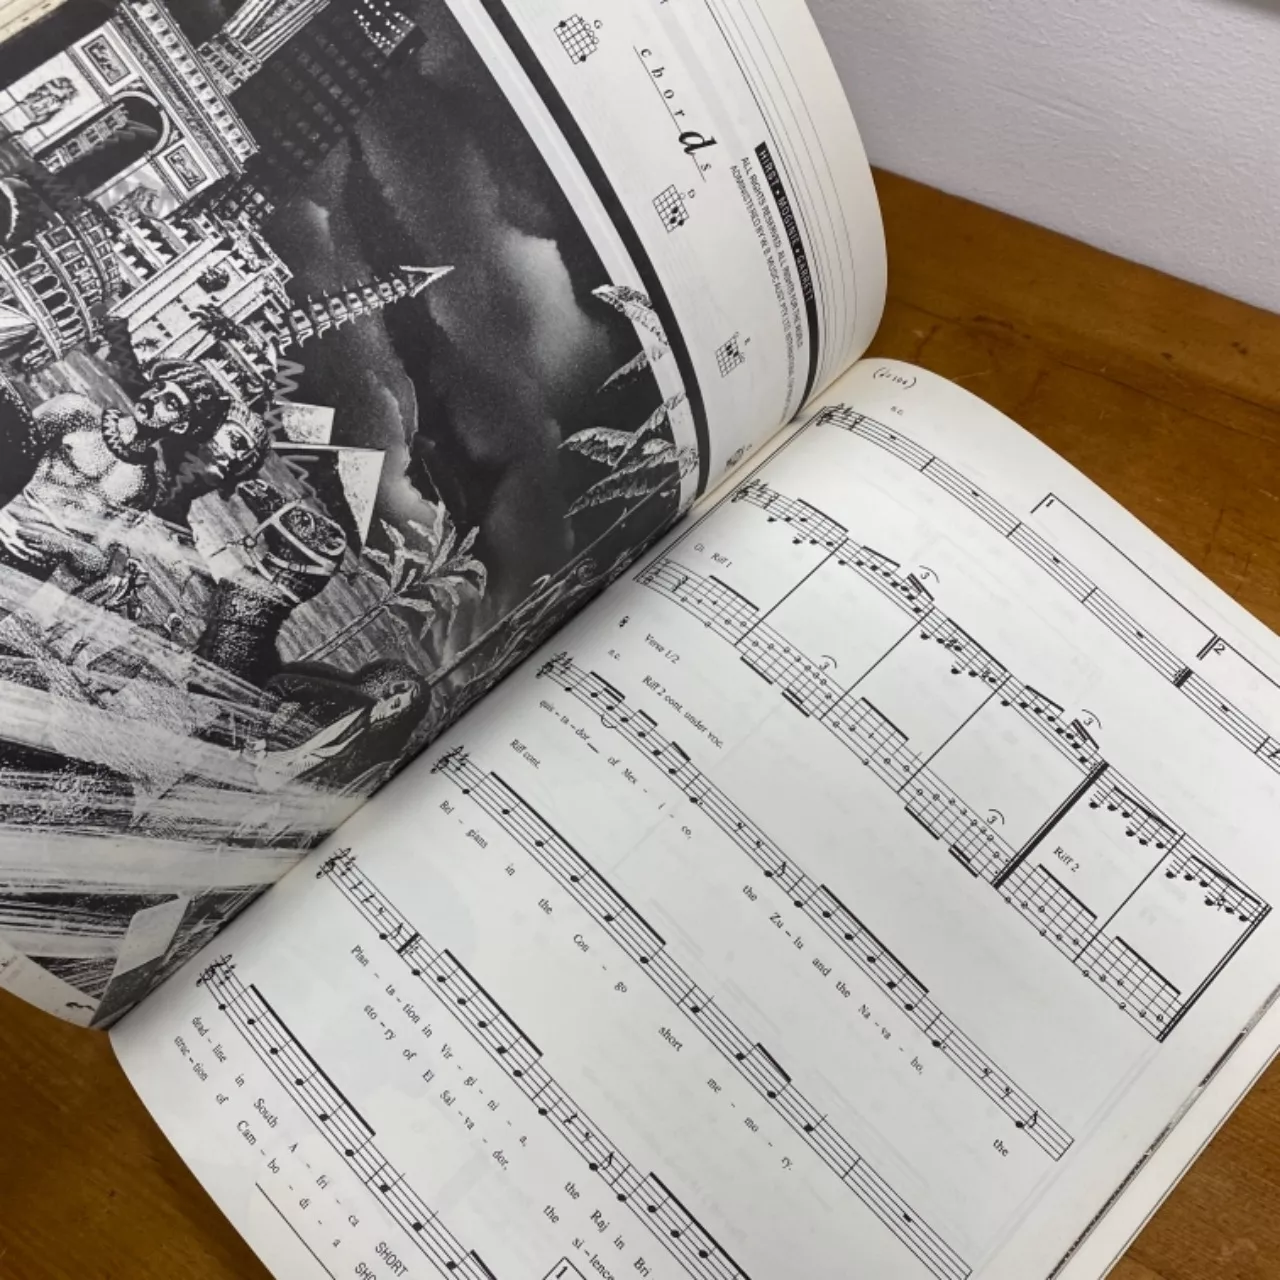 G
chords
D
E
HIRST • MOGINIE • GARRETT
ALL RIGHTS RESERVED. ALL RIGHTS FOR THE WORLD
ADMINISTERED BY W. B. MUSIC AUST. PTY LTD. INTERNATIONAL
N.C.
1
2
3
3
Riff 1
3
3
Riff 2
Verse 1/2
n.c.
Riff 2 cont. under voc.
quis – ta – dor of Mex – i – co, the Zu – lu and the Na – va – ho, the
Riff cont.
Bel – gians in the Con – go short me – mo – ry.
Plan – ta – tion in Vir – gi – ni – a, the Raj in Bri
sto – ry of El Sal – va – dor, the si – lence
dead – line in South A – fri – ca SHORT
struc – tion of Cam – bo – di – a
1